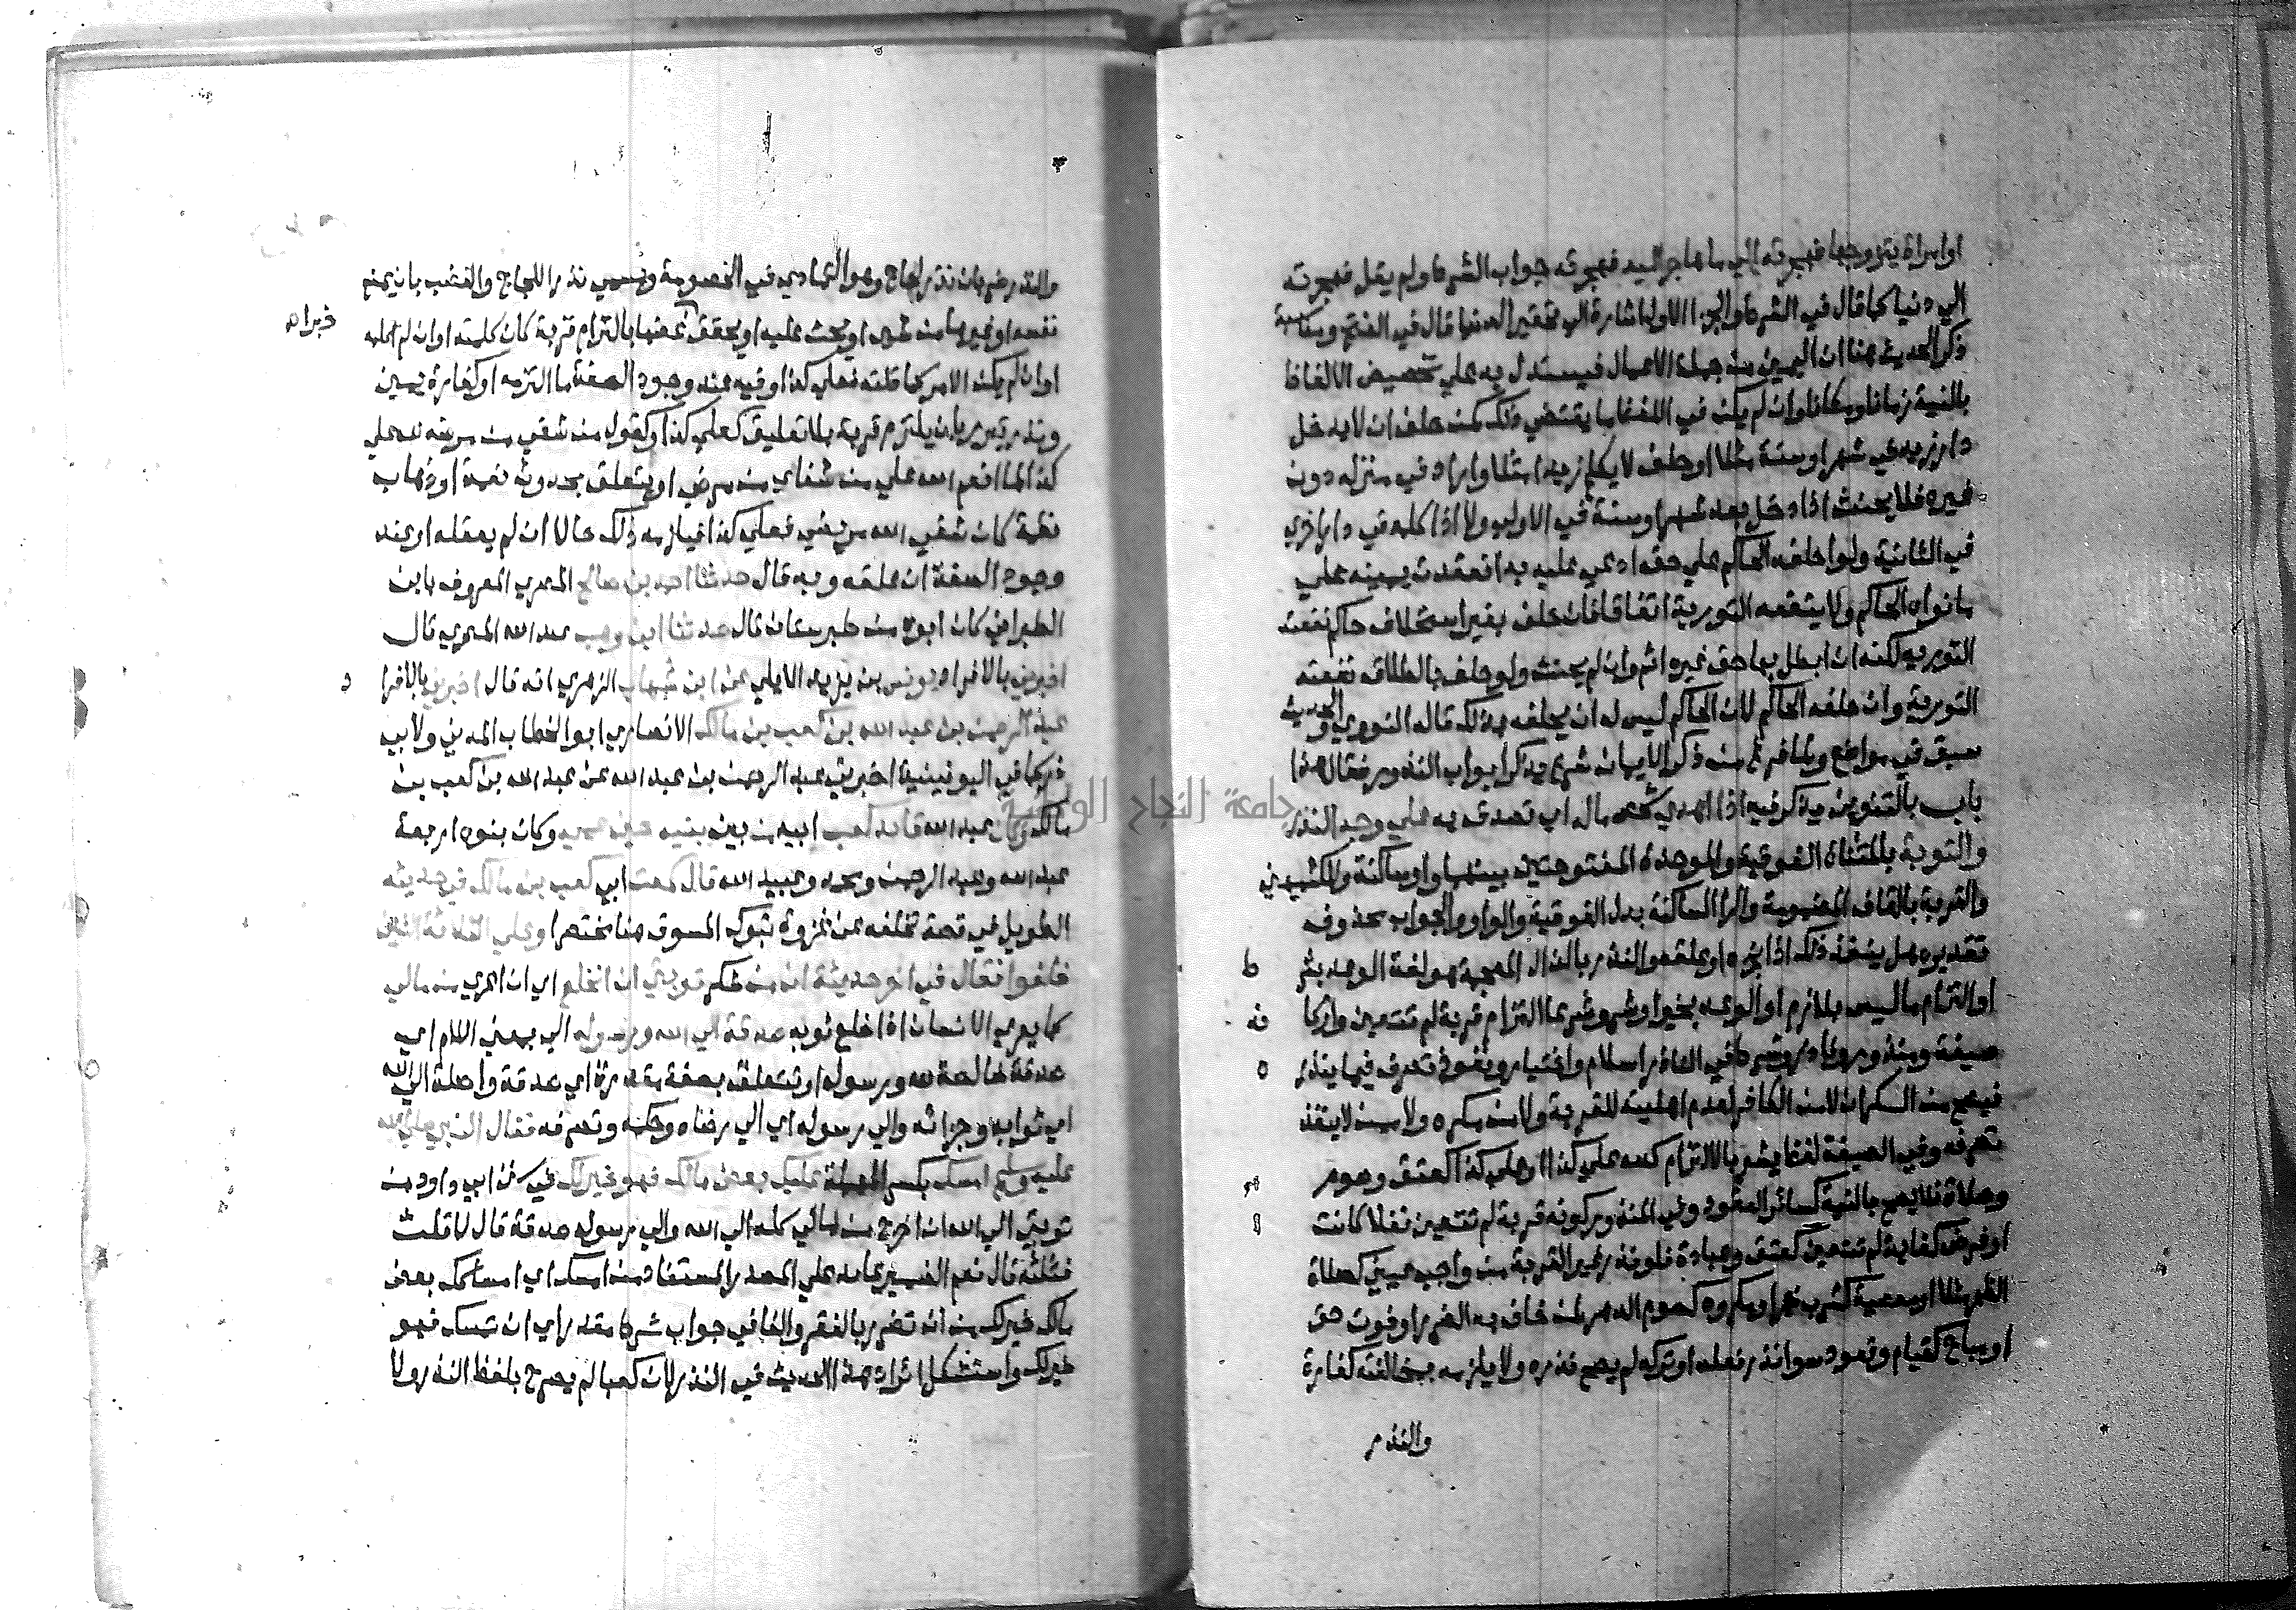 او امراة يتزوجها فهجرته الي ما هاجر اليه فهجرته جواب الشرط ولم يقل فهجرته
الي دنيا كما قال في الشرط والجزا الاول اشارة الي تحقير الدنيا قال في الفتح ومناسبة
ذكر الحديث هنا ان اليمين من جملة الاعمال فيستدل به علي تخصيص الالفاظ
بالنية زمانا ومكانا وان لم يكن في اللفظ ما يقتضي ذلك كمن حلف ان لا يدخل
دار زيد في شهر او سنة مثلا او حلف لا يكلم زيدا مثلا واراد في منزله دون
غيره فلا يحنث اذا دخل بعد شهر او سنة في الاولي ولا اذا كلمه في دار اخري
في الثانية ولو احلفه الحاكم علي حق ادعي عليه به انعقدت يمينه علي
ما نواه الحاكم ولا ينفعه التورية اتفاقا فان حلف بغير استحلاف حاكم نفعته
التورية لكنه ان ابطل بها حق غيره اثم وان لم يحنث ولو حلف بالطلاق نفعته
التورية وان حلفه الحاكم لان الحاكم ليس له ان يحلفه بذلك قاله النووي والحديث
سبق في مواضع ولما فرغ من ذكر الايمان شرع يذكر ابواب النذور فقال هذا
باب بالتنوين يذكر فيه اذا اهدي شخص ماله اي تصدق به علي وجه النذر
والتوبة بالمثناة الفوقية والموحدة المفتوحتين بينهما واو ساكنة وللكشميهني
والقربة بالقاف المضمومة والرا الساكنة بدل الفوقية والواو والجواب محذوف
تقديره هل ينفذ ذلك اذا نجزه او علقه والنذر بالذال المعجمة هو لغة الوعد بشر ط
او التزام ما ليس بلازم او الوعد بخير او شر وشرعا التزام قربة لم تتعين واركا نه
صيغة ومنذور وناذر وشرط في الناذر اسلام واختيار ونفوذ تصرف فيما ينذر ه
فيصح من السكران لا من الكافر لعدم اهليته للقربة ولا من مكره ولا ممن لا ينفذ
تصرفه وفي الصيغة لفظ يشعر بالالتزام كلله علي كذا او علي كذا كعتق وصوم
وصلاة فلا يصح بالنية كسائر العقود وفي المنذور كونه قربة لم تتعين نفلا كانت
او فرض كفاية لم تتعين كعتق وعيادة فلو نذر غير القربة من واجب عيني كصلاة
الظهر مثلا او معصية كشرب خمر او مكروه كصوم الدهر لمن خاف به الضرر او فوت حق
او مباح كقيام وقعود سوا نذر فعله او تركه لم يصح نذره ولا يلزمه بمخالفته كفارة
والنذر
والنذر ضربان نذر لجاج وهو التمادي في الخصومة ويسمي نذر اللجاج والغضب بان يمنع
نفسه او غيرها من شي او يحث عليه او يحقق غضبا بالتزام قربة كان كلمته او ان لم اكلمه
خبرا
او ان لم يكن الامر كما قلته فعلي كذا وفيه عند وجود الصفة ما التزمه او كفارة يمين
ونذر تبرر بان يلتزم قربة بلا تعليق كعلي كذا وكقول من شفي من مرضه لله علي
كذا لما انعم الله علي من شفاي من مرضي او بتعليق بحدوث نعمة او ذهاب
نقمة كان شفي الله مريضي فعلي كذا فيلزمه ذلك حالا ان لم يعلقه او عند
وجود الصفة ان علقه وبه قال حدثنا احمد بن صالح المصري المعروف بابن
الطبراني كان ابوه من طبرستان قال حدثنا ابن وهب عبد الله المصري قال
اخبرني بالافراد يونس بن يزيد الايلي عن ابن شهاب الزهري انه قال اخبرني بالافرا د
عبد الرحمن بن عبد الله بن كعب بن مالك الانصاري ابو الخطاب المدني ولابي
ذر كما في اليونينية اخبرني عبد الرحمن بن عبد الله عن عبد الله بن كعب بن
مالك وكان عبد الله قائد كعب ابيه من بين بنيه حين عمي وكان بنوه اربعة
عبد الله وعبد الرحمن ومحمد وعبيد الله قال سمعت ابي كعب بن مالك في حديثه
الطويل في قصة تخلفه عن غزوة تبوك المسوق هنا مختصرا وعلي الثلاثة الذين
خلفوا فقال في اخر حديثه ان من شكر توبتي ان انخلع اي ان اعري من مالي
كما يعري الانسان اذا خلع ثوبه صدقة الي الله ورسوله الي بمعني اللام اي
صدقة خالصة لله ورسوله او تتعلق بصفة مقدرة اي صدقة واصلة الي الله
اي ثوابه وجزائه والي رسوله اي الي رضاه وحكمه وتصرفه فقال النبي صلي الله
عليه وسلم امسك بكسر المهملة عليك بعض مالك فهو خير لك في سنن ابي داود من
توبتي الي الله ان اخرج من مالي كله الي الله والي رسوله صدقة قال لا قلت
فثلثه قال نعم الضمير عايد علي المصدر المستفاد من امسك اي امساكك بعض
مالك خير لك من ان تضرر بالفقر والفا في جواب شرط مقدر اي ان تمسك فهو
خير لك واستشكل ايراد هذا الحديث في النذر لان كعبا لم يصرح بلفظ النذر ولا
جامعة النجاح الوطنية